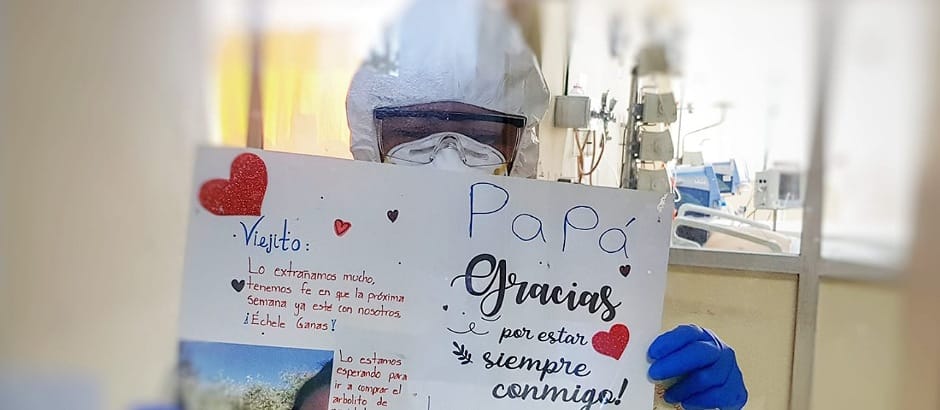 Viejito:
Lo extrañamos mucho,
tenemos fe en que la próxima
semana ya esté con nosotros.
¡Échele Ganas!
Lo estamos
esperando para
ir a comprar el
arbolito de
PaPá
Gracias
por estar
siempre
conmigo!